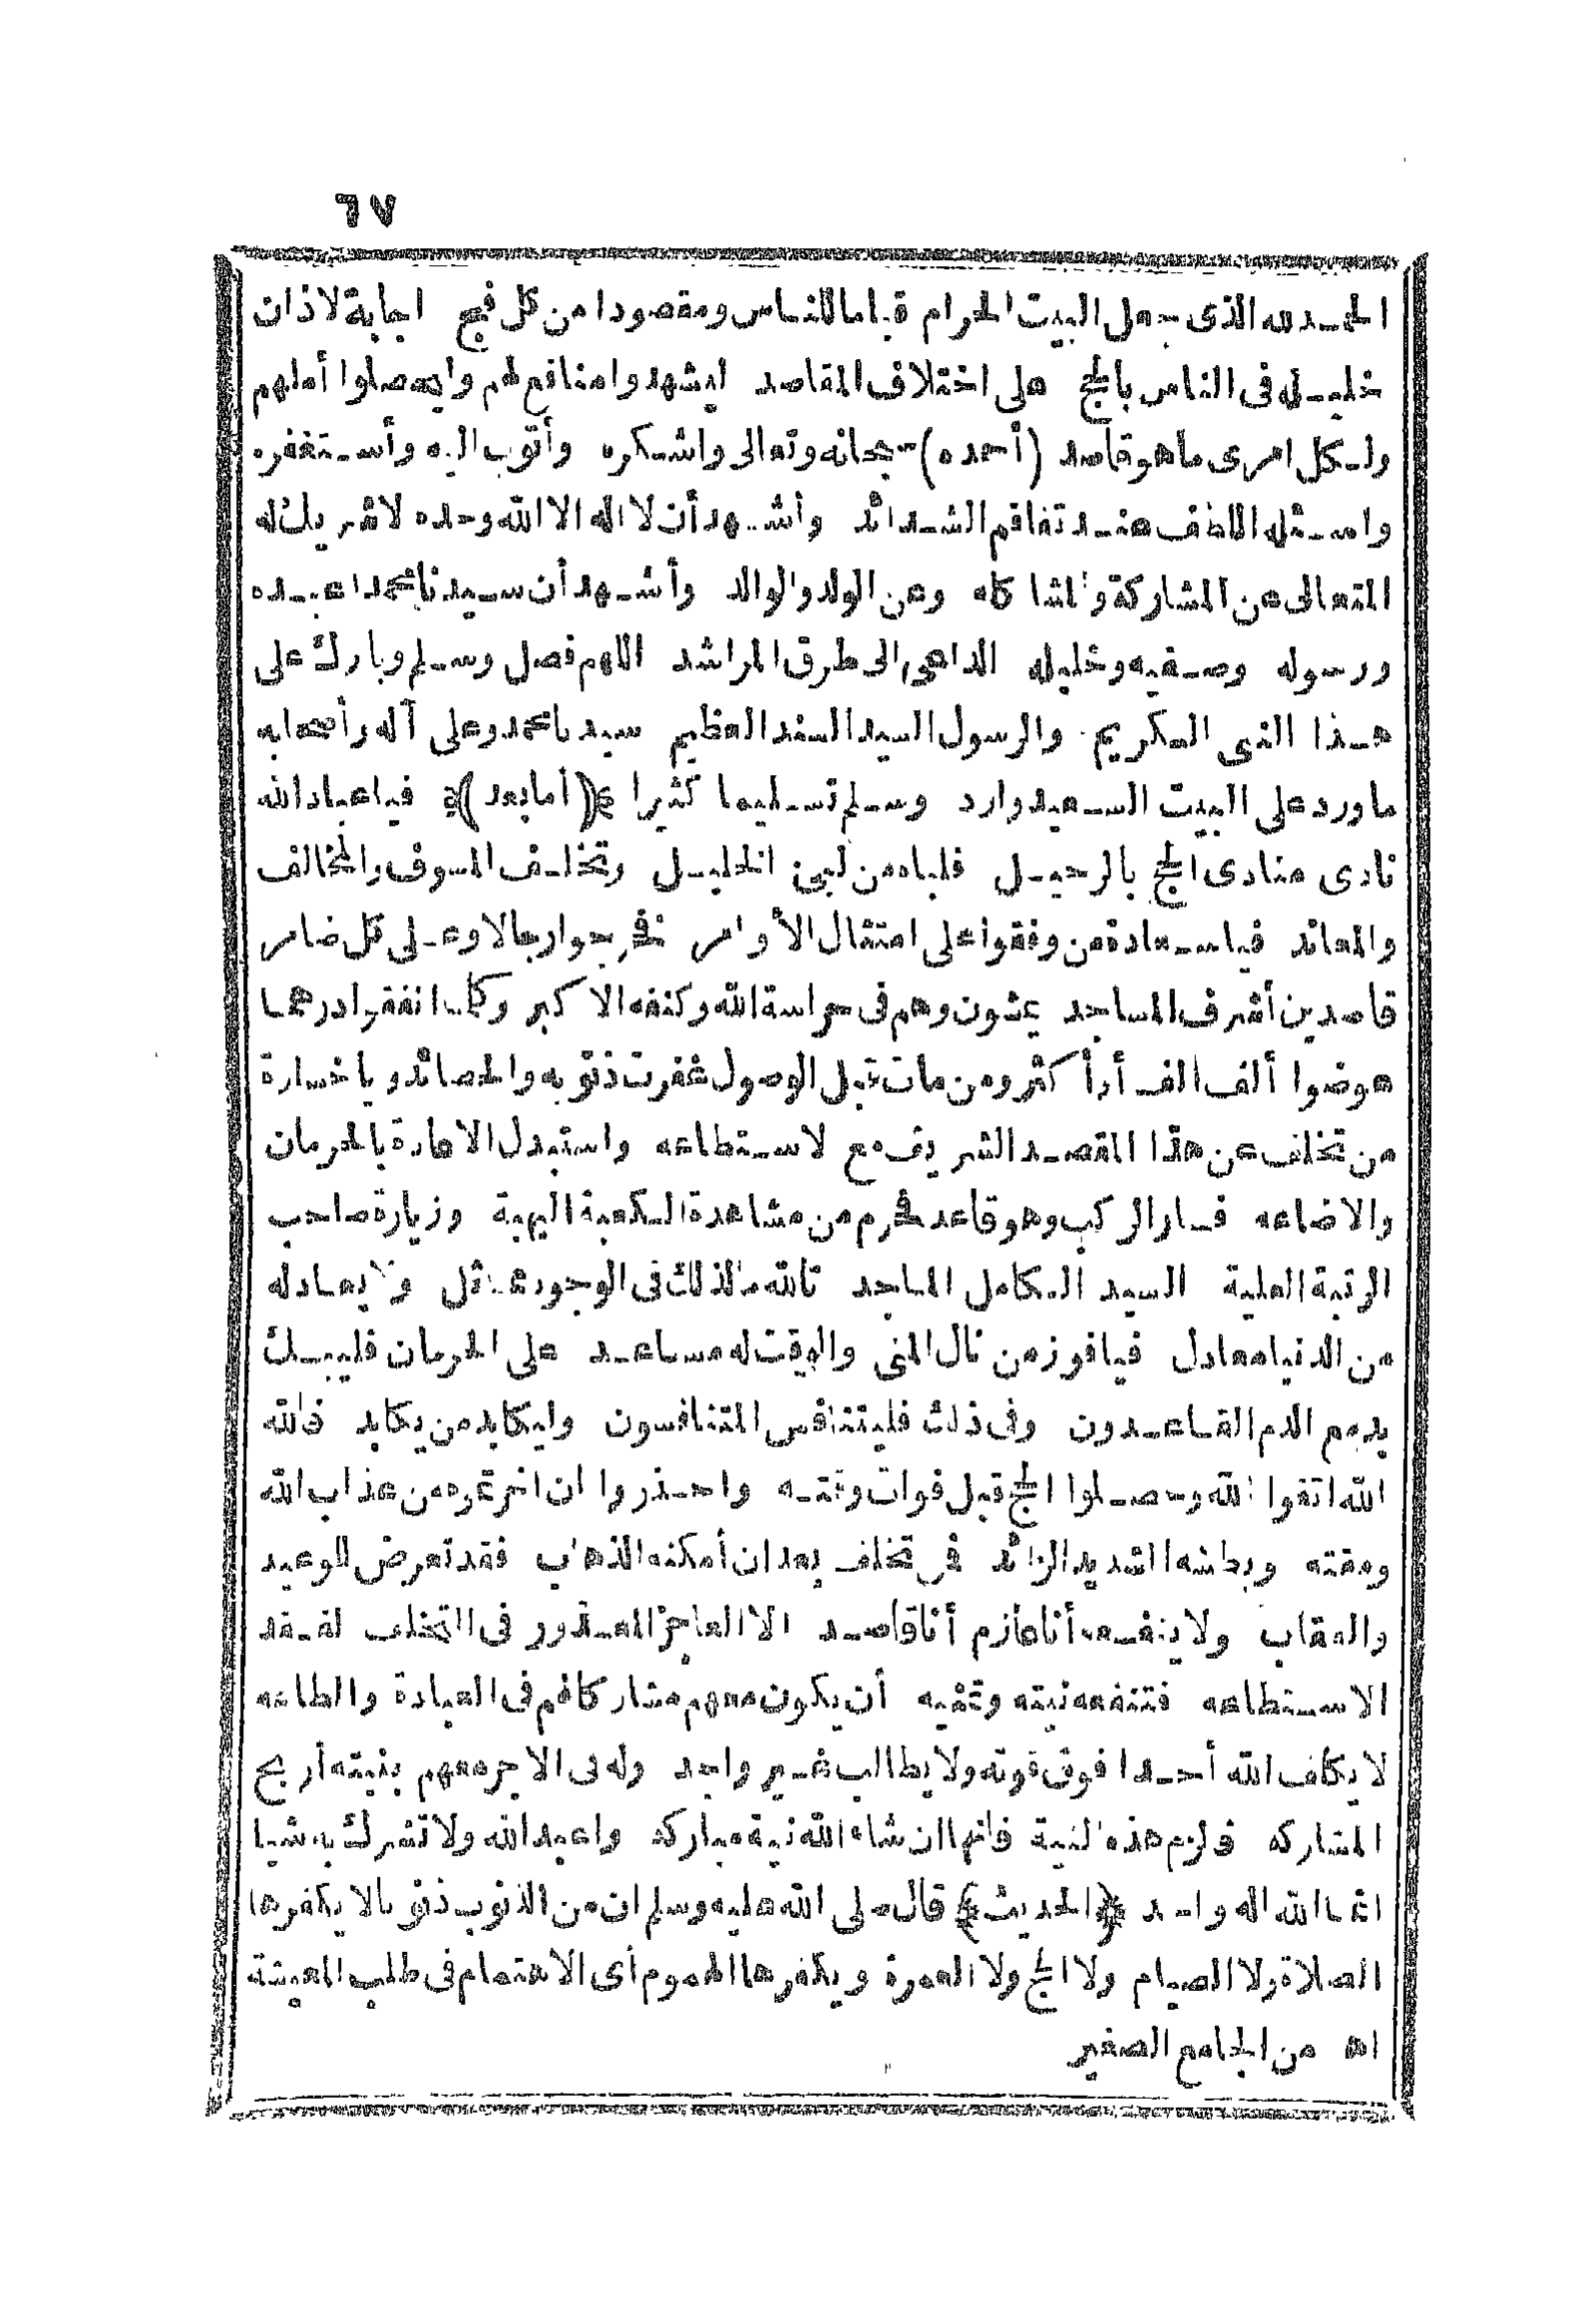 ٦٧
الحمد لله الذى جعل البيت الحرام قياما للناس ومقصودا من كل فج اجابة لاذان
خليله فى الناس بالحج على اختلاف المقاصد ليشهدوا منافع لهم وليحصلوا أملهم
ولكل امرى ما هو قاصد (أحمده) سبحانه وتعالى واشكره وأتوب اليه وأستغفره
واسئله اللطف عند تفاقم الشدائد وأشهد أن لا اله الا الله وحده لا شريك له
المتعالى عن المشاركة والمشاكله وعن الولد والوالد وأشهد أن سيدنا محمدا عبده
ورسوله وصفيه وخليله الداعى الى طرق المراشد اللهم فصل وسلم وبارك على
هذا النبى الكريم والرسول السيد السند العظيم سيدنا محمد وعلى آله وأصحابه
ما ورد على البيت السعيد وارد وسلم تسليما كثيرا (أما بعد) فيا عباد الله
نادى منادى الحج بالرحيل فلباه من لبى الخليل وتخلف المسوف والمخالف
والمعاند فيا سعادة من وفقوا على امتثال الأوامر فخرجوا رجالا وعلى كل ضامر
قاصدين أشرف المساجد يمشون وهم فى حراسة الله وكنفه الاكبر وكلما انفقوا درهما
عوضوا ألف ألف أو أكثر ومن مات قبل الوصول غفرت ذنوبه والحصائد ويا خسارة
من تخلف عن هذا المقصد الشريف مع الاستطاعه واستبدل الاعارة بالحرمان
والاضاعه فسار الركب وهو قاعد فحرم من مشاهدة الكعبة البهية وزيارة صاحب
الرتبة العلية السيد الكامل الماجد تالله ما لذلك فى الوجود مماثل ولا يعادله
من الدنيا معادل فيا فوز من نال المنى والوقت له مساعد على الحرمان فليبك
بدمع الدم القاعدون وفى ذلك فليتنافس المتنافسون وليكابد من يكابد فالله
الله اتقوا الله وحصلوا الحج قبل فوات وقته واحذروا ان اخرتموه من عذاب الله
ومقته وبطشه الشديد الزائد فمن تخلف بعد ان أمكنه الذهاب فقد تعرض للوعيد
والعقاب ولا ينفعه أنا عازم أنا قاصد الا العاجز المعذور فى التخلف لفقد
الاستطاعه فتنفعه نيته وتمنيه أن يكون معهم مشاركا لهم فى العبادة والطاعه
لا يكلف الله أحدا فوق قوته ولا يطالب غير واجد وله فى الاجر معهم بنيته أربح
المشاركه فلازم هذه النية فانها ان شاء الله نية مباركه واعبد الله ولا تشرك به شيا
انما الله اله واحد (الحديث) قال صلى الله عليه وسلم ان من الذنوب ذنوبا لا يكفرها
الصلاة ولا الصيام ولا الحج ولا العمرة ويكفرها الهموم أى الاهتمام فى طلب المعيشة
اه من الجامع الصغير